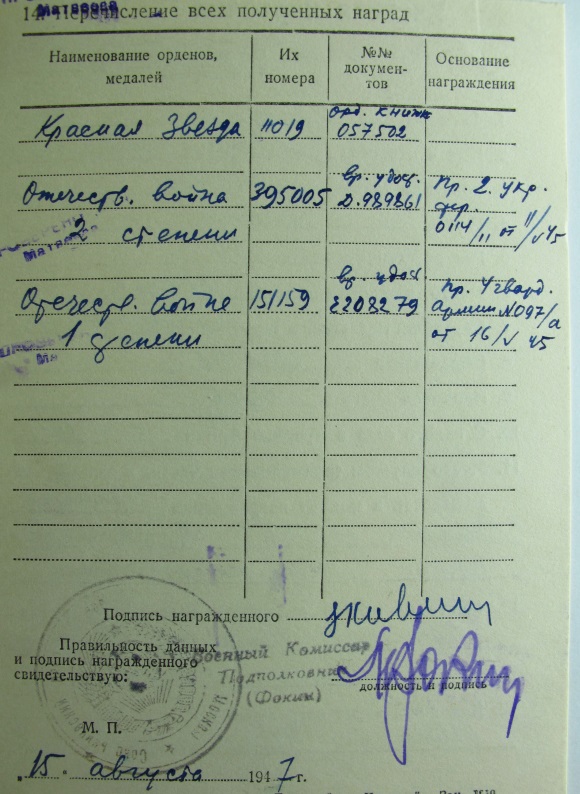 14. Перечисление всех полученных наград
Матвеева
Наименование орденов, медалей
Их номера
№№ докумен-тов
Основание награждения
Красная Звезда 11019 орд. книжк 057502
Отечеств. война 2 степени 395005 вр. удос. Д.989861 Пр. 2. укр. фр. 0114/н от 11/V 45
Отечеств. война 1 степени 151159 вр. удос. Пр. 4 гвард. армии N097/н от 16/V 45
Подпись награжденного
Правильность данных
и подпись награжденного
свидетельствую:
Военный Комиссар
Подполковник
(Фокин)
должность и подпись
М. П.
"15" августа 1947 г.